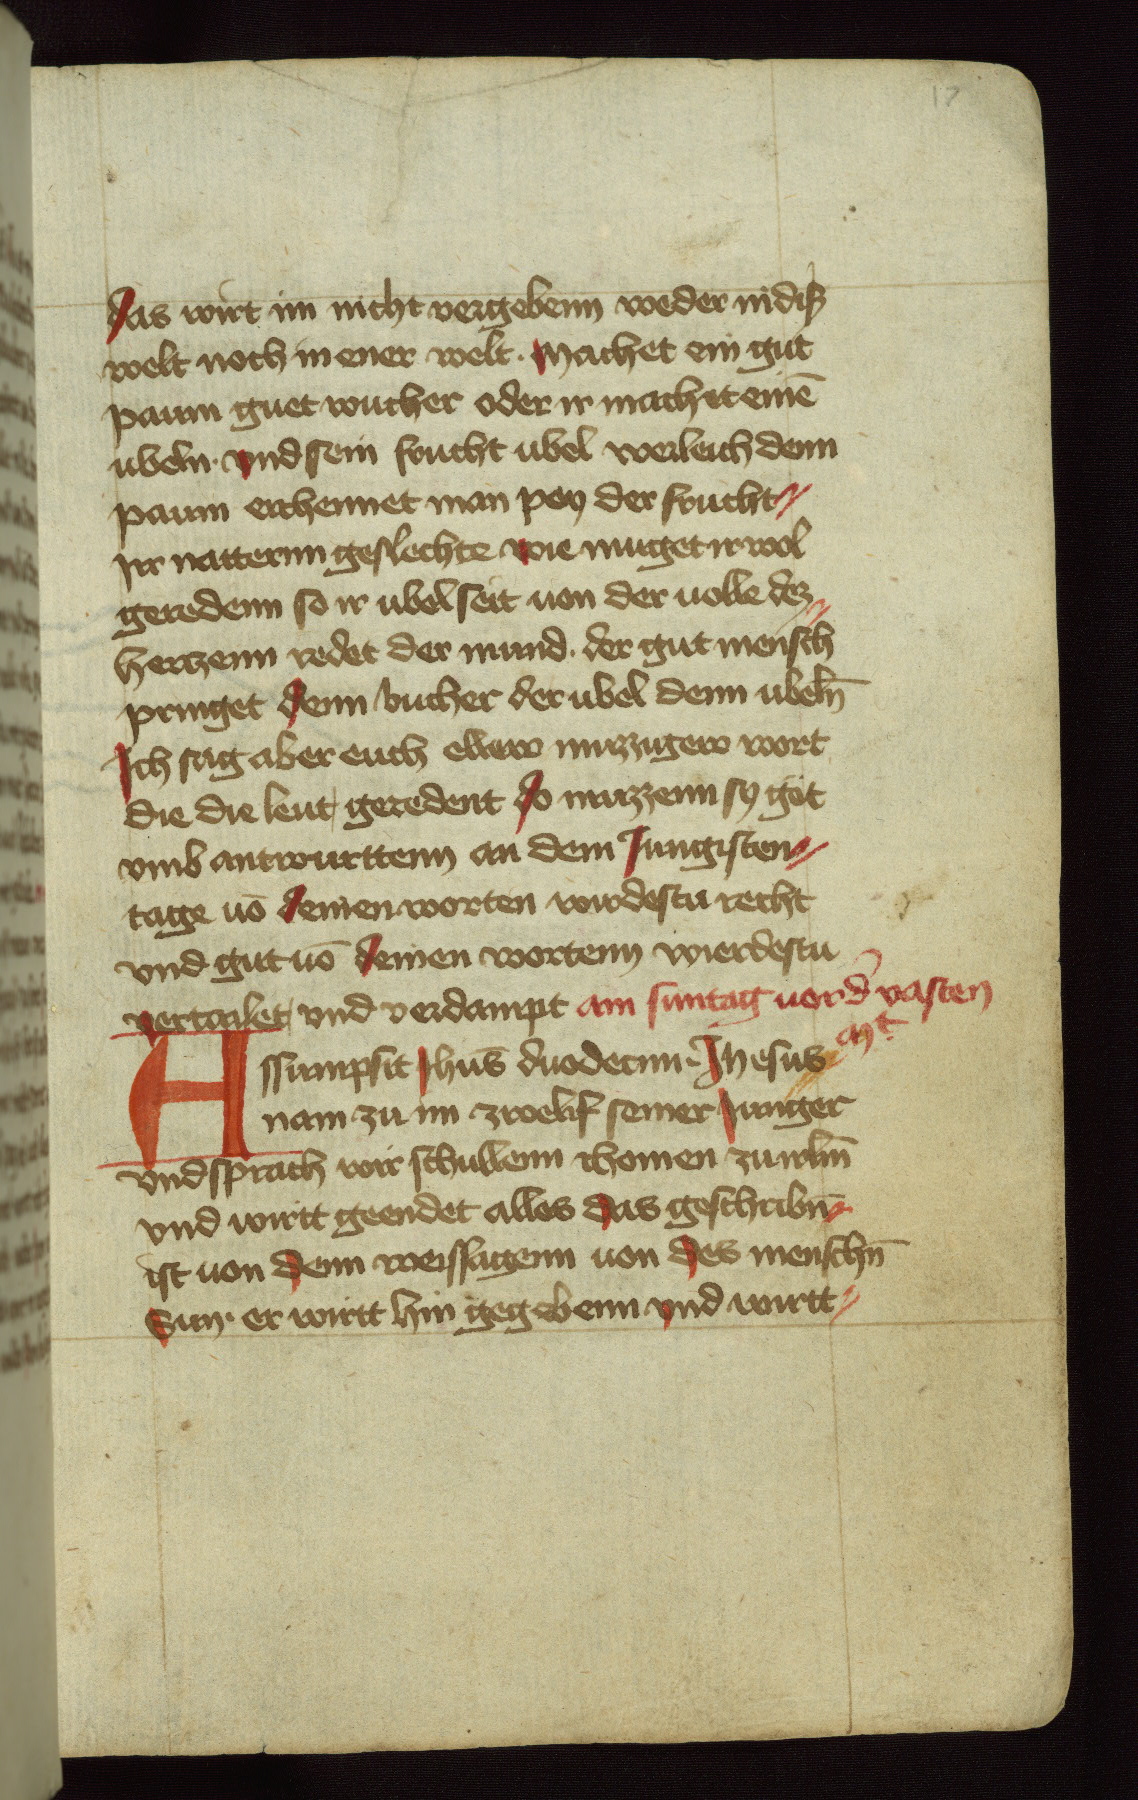 17
das wirt im nicht vergebenn weder in diß
welt noch in ener welt. Machet ein gut
paum guet wucher oder ir machit einē
ubeln. vnd sein frucht ubel werleich denn
paum erchennet man pey der frucht
Irr natternn geslechte wie muget ir wol
geredenn so ir ubel seit von der volle dez
herczenn redet der mund. der gut mensch
pringet denn bucher der ubel denn ubeln̄
Ich sag aber euch ellew muzzigew wort
die die leut geredent do muzzenn sy got
vmb antwurttenn an dem Jungisten
tage vō deinen worten wirdestu recht
vnd gut vō deinen wortenn wierdestu
vertailet vnd verdampt am suntag vor d̄ vasten
Assumpsit Jhūs duodecim. Jhesus
nam zu im zwelif seiner Junger
vnd sprach wir schullenn chomen zu irlm̄
vnd wirtt geendet alles das geschribn̄
ist von denn weissagenn von des menschn̄
Sun. er wirtt hin gegebenn vnd wirtt